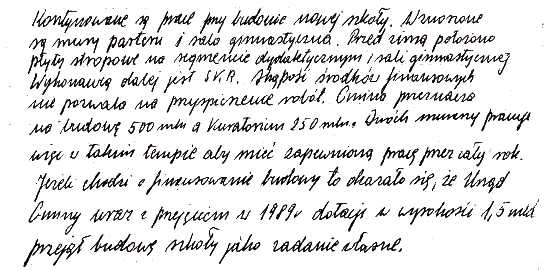 Kontynuowane są prace przy budowie nowej szkoły. Wznoszone
są mury parteru i sala gimnastyczna. Przed zimą położono
płyty stropowe na segmencie dydaktycznym i sali gimnastycznej
Wykonawcą dalej jest SKR. Skąpość środków finansowych
nie pozwala na przyspieszenie robót. Gmina przeznacza
na budowę 500 mln a Kuratorium 250 mln. Dwóch murarzy pracuje
więc w takim tempie aby mieć zapewnioną pracę przez cały rok.
Jeżeli chodzi o finansowanie budowy to okazało się, że Urząd
Gminy wraz z przyjęciem w 1989r dotacji w wysokości 1,5 mld
przejął budowę szkoły jako zadanie własne.